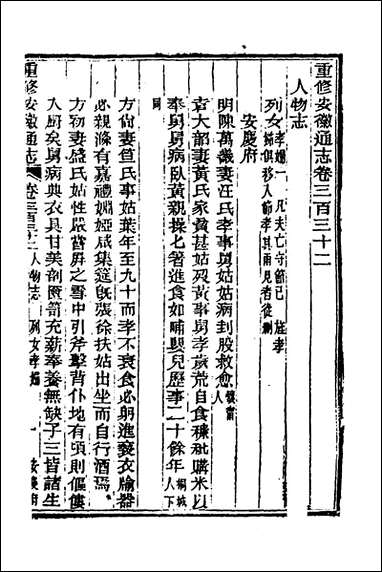 重修安徽通志卷三百三十二
人物志
列女孝婦一 凡夫亡守節已旌孝婦俱移入節孝其兩見者從刪
安慶府
明陳萬義妻汪氏孝事舅姑姑病刲股救愈懷甯人
袁大部妻黃氏家貧甚姑歿黃事舅孝歲荒自食糠秕購米以
奉舅舅病臥黃親操匕箸進食如哺嬰兒歷事二十餘年桐城人下同
方尚妻笪氏事姑葉年至九十而孝不衰食必躬進褻衣牏器
必親滌有嘉禮婣婭咸集筵既張徐扶姑出坐而自行酒焉
方物妻盛氏姑性嚴嘗屏之雪中引斧擊背仆地有頃則傴僂
入廚矣舅病典衣具甘美剖篋笥充薪奉養無缺子三皆諸生
重修安徽通志 卷三百三十二 人物志 列女孝婦 一 安慶府